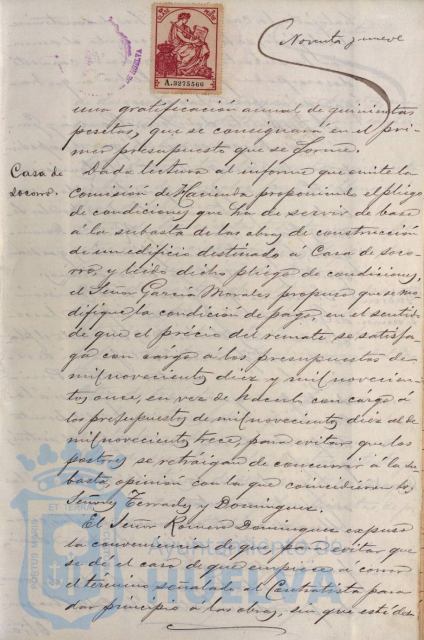 Noventa y nueve
A.9275566
una gratificación anual de quinientas
pesetas, que se consignará en el pri-
mer presupuesto que se forme.
Casa de
socorro.
Dada lectura al informe que emite la
Comisión de Hacienda proponiendo el pliego
de condiciones que ha de servir de base
á la subasta de las obras de construcción
de un edificio destinado á Casa de soco-
rro, y leido dicho pliego de condiciones,
el Señor García Morales propuso que se mo-
difique la condición de pago, en el sentido
de que el precio del remate se satisfa-
ga con cargo á los presupuestos de
mil novecientos diez y mil novecien-
tos once, en vez de hacerlo con cargo á
los presupuestos de mil novecientos diez al de
mil novecientos trece, para evitar que los
postores se retraigan de concurrir á la su-
basta, opinión con la que coincidieron los
Señores Terrades y Dominguez.
El Señor Romero Dominguez expuso
la conveniencia de que para evitar que
se dé el caso de que empiece á correr
el término señalado al Contratista para
dar principio á las obras, sin que esté des-
Ayuntamiento de
HUELVA